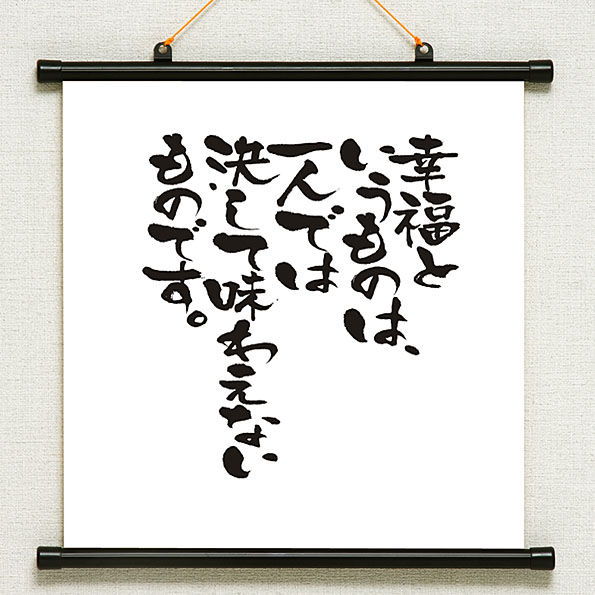 幸福と
いうものは、
一人では
決して味わえない
ものです。